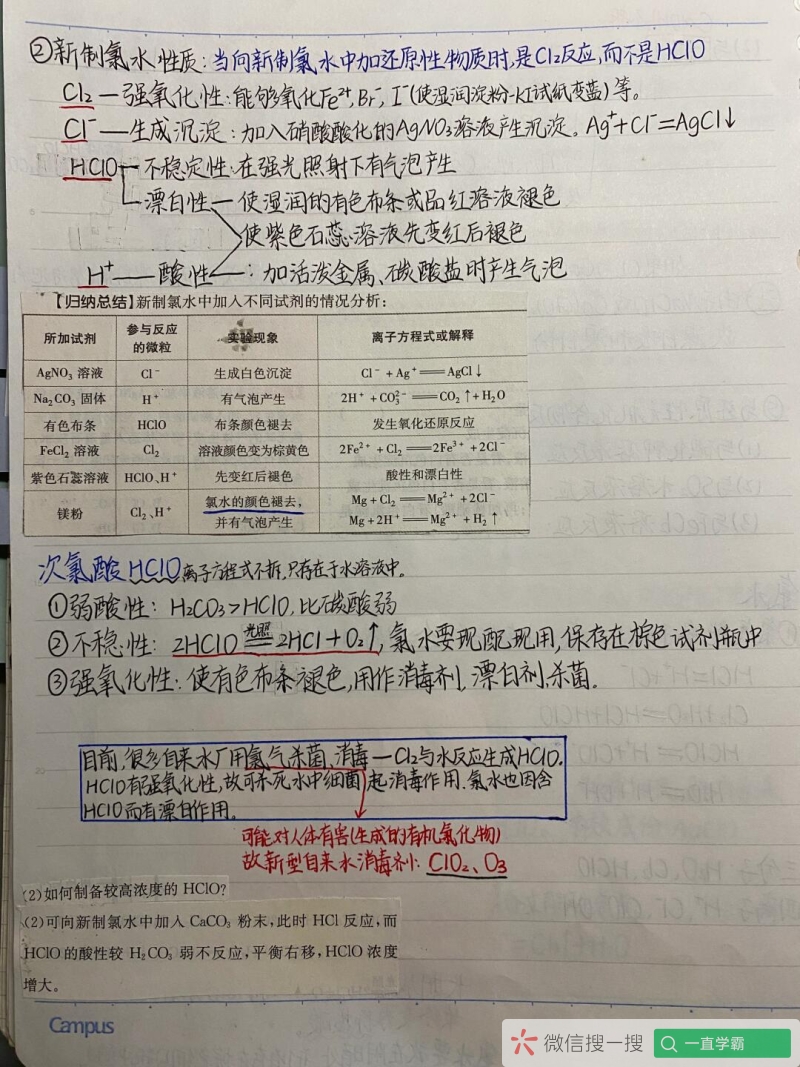 ②新制氯水性质：当向新制氯水中加还原性物质时,是Cl₂反应,而不是HClO
Cl₂—强氧化性：能够氧化Fe²⁺,Br⁻,I⁻(使湿润淀粉-KI试纸变蓝)等。
Cl⁻—生成沉淀：加入硝酸酸化的AgNO₃溶液产生沉淀。Ag⁺+Cl⁻=AgCl↓
HClO—不稳定性:在强光照射下有气泡产生
漂白性—使湿润的有色布条或品红溶液褪色
使紫色石蕊溶液先变红后褪色
H⁺——酸性—：加活泼金属、碳酸盐时产生气泡
【归纳总结】新制氯水中加入不同试剂的情况分析：
所加试剂 参与反应的微粒 实验现象 离子方程式或解释
AgNO₃ 溶液 Cl⁻ 生成白色沉淀 Cl⁻+Ag⁺══AgCl↓
Na₂CO₃ 固体 H⁺ 有气泡产生 2H⁺+CO₃²⁻══CO₂↑+H₂O
有色布条 HClO 布条颜色褪去 发生氧化还原反应
FeCl₂ 溶液 Cl₂ 溶液颜色变为棕黄色 2Fe²⁺+Cl₂══2Fe³⁺+2Cl⁻
紫色石蕊溶液 HClO、H⁺ 先变红后褪色 酸性和漂白性
镁粉 Cl₂、H⁺ 氯水的颜色褪去， Mg+Cl₂══Mg²⁺+2Cl⁻
并有气泡产生 Mg+2H⁺══Mg²⁺+H₂↑
次氯酸HClO离子方程式不拆,只存在于水溶液中。
①弱酸性：H₂CO₃>HClO,比碳酸弱
②不稳性：2HClO 光照══ 2HCl+O₂↑,氯水要现配现用,保存在棕色试剂瓶中
③强氧化性：使有色布条褪色,用作消毒剂,漂白剂,杀菌。
目前,很多自来水厂用氯气杀菌、消毒—Cl₂与水反应生成HClO.
HClO有强氧化性,故可杀死水中细菌,起消毒作用.氯水也因含
HClO而有漂白作用。
可能对人体有害(生成的有机氯化物)
故新型自来水消毒剂：ClO₂、O₃
(2)如何制备较高浓度的 HClO?
(2)可向新制氯水中加入 CaCO₃ 粉末,此时 HCl 反应,而
HClO的酸性较 H₂CO₃ 弱不反应,平衡右移,HClO 浓度
增大。
Campus
微信搜一搜 一直学霸